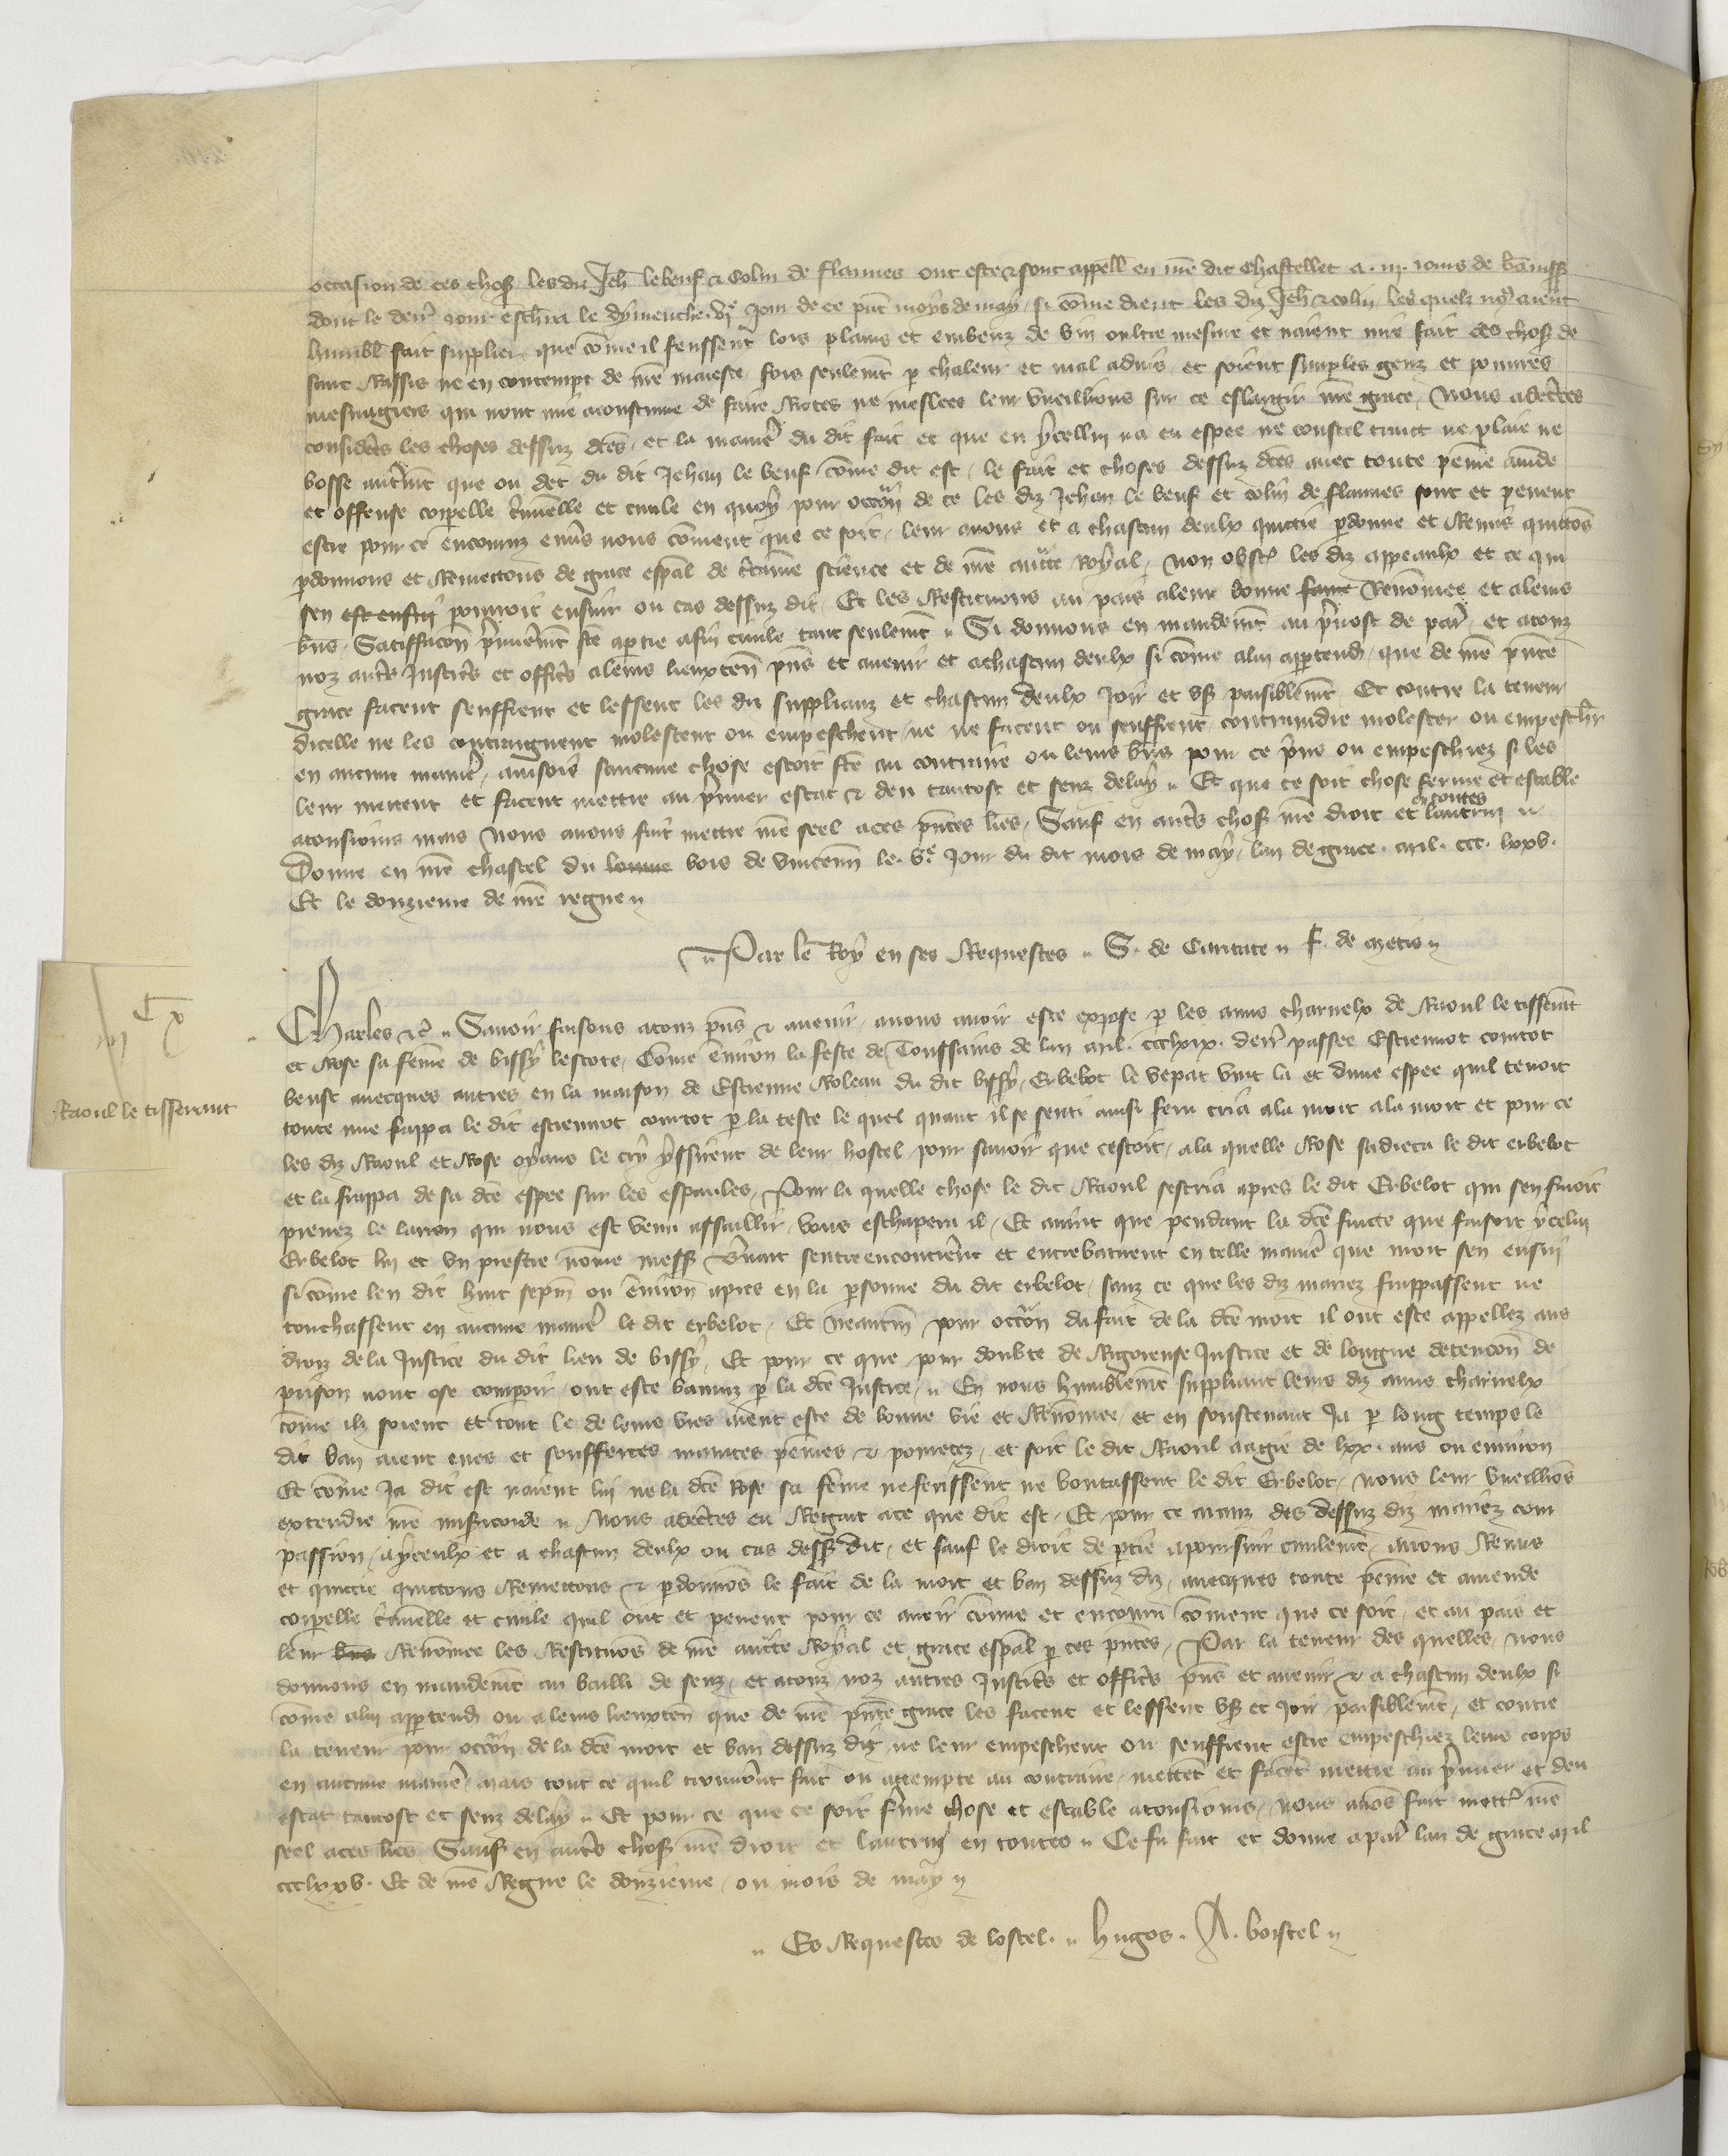 occasion de ces chos. les diz Jeh. lebeuf & Colin de flannes ont este & sont appell. en nre dit chastellet a .iij. iours de banniss.
dont le derr. iour escherra le dymenche .vje. Jour de ce pnt moys de may, si come dient les diz Jeh. & colin, les quelz noz aient
humbl. fait supplier que come il feussent lors plains et embeuz de vin oultre mesure et naient mie fait ces chos. de
sanc Rassis ne en contempt de nre maieste fors seulemt p chaleur et mal aduis, et soient simples genz et pouures
mesnagiers qui nont mie acoustume de faire Riotes ne meslees leur vueillions sur ce eslargir nre grace, Nous adctes
considtes les choses dessuz dces, et la maniere du dit fait et que en ycellui na eu espee ne coustel trait ne plaie ne
bosse autremt que ou det du dit Jehan le beuf come dit est, le fait et choses dessuz dces auec toute peine amde
et offense corpelle criminelle et ciuile en quoy pour occon de ce les diz Jehan le beuf et Colin de flannes sont et peuent
estre pour ce encouruz enuers nous coment que ce soit, leur auons et a chascun deulx quictie pdonne et Remis quictos
pdonnons et Remectons de grace espal de ctaine science et de nre aucte Royal, Non obst. les diz appeaulx et ce qui
sen est ensuy pourroit ensuir ou cas dessuz dit. Et les Restituons au pais a leur bonne fame Renomee et a leurs
bns. Satiffacon pmieremt fte a ptie a fin ciuile tant seulemt. Si donnons en mandemt au preuost de par. et a touz
noz autrs Justiciers et officrs a leurs lieuxten. pns et auenir et a chascun deulx si come a lui aptend, que de nre pnte
grace facent seuffrent et lessent les diz supplianz et chascun deulx Joir et us. paisiblemt. Et contre la teneur
dicelle ne les contraignent molestent ou empeschent, ne ne facent ou seuffrent contraindre molester ou empescher
en aucune maniere, aincois saucune chose estoit fte au contraire ou leurs bns pour ce prins ou empeschiez si les
leur mettent et facent mettre au pmier estat & deu tantost et senz delay. Et que ce soit chose ferme et estable
a tousiours mais Nous auons fait mettre nre seel a ces pntes lres, Sauf en autrs chos. nre droit et lautruy en toutes
Donne en nre chastel du louure bois de vincenn. le .ve. Jour du dit mois de may, lan de grace . mil . ccc . lxxv.
Et le douzieme de nre regne
Par le Roy en ses Requestes. S. de Caritate. F. de metis
Cx
Raoul le tisserant
Charles &c. Sauoir faisons a touz pns & auenir, a nous auoir este expose p les amis charnelx de Raoul le tisserant
et Rose sa feme de bissy lescote, Come enuiron la feste de Toussains de lan mil . ccclxix. derr. passee Estiennot coucot
beust auecques autres en la maison de Estienne Roleau du dit bissy, Erbelot le vepat vint la et dune espee quil tenoit
toute nue frappa le dit estiennot coucot p la teste le quel quant il se senti ainsi feru cria a la mort a la mort et pour ce
les diz Raoul et Rose oyans le cry yssirent de leur hostel pour sauoir que cestoit, a la quelle Rose sadreca le dit erbelot
et la frappa de sa dce espee sur les espaules, Pour la quelle chose le dit Raoul sescria apres le dit Erbelot qui sen fuioit
prenez le larron qui nous est venu assaillir, vous eschapera il, Et auint que pendant la dce fuicte que faisoit ycelui
Erbelot lui et vn prestre nome mess. sentreencontrerent et entrebatirent en telle maniere que mort sen ensui
si come len dit huit sepm. ou enuiron apres en la psonne du dit erbelot, sanz ce que les diz mariez frappassent ne
touchassent en aucune maniere le dit erbelot, Et neantm. pour occon du fait de la dce mort il ont este appellez aus
droiz de la Justice du dit lieu de bissy, Et pour ce que pour doubte de Rigoreuse Justice et de longue detencon de
prison nont ose compoir, ont este banniz p la dce Justice. En nous humblemt suppliant leurs diz amis charnelx
come ilz soient et tout le de leurs vies aient este de bonne vie et Renomee, et en soustenant Ja p long temps le
dit ban aient eues et souffertes maintes peines & pouretez, et soit le dit Raoul aagie de lxx. ans ou enuiron
Et come Ja dit est naient lui ne la dce Rose sa feme ne ferissent ne boutassent le dit Erbelot, nous leur vueillios
extendre nre misericorde. Nous adctes eu Regart a ce que dit est, Et pour ce aianz des dessuz diz mariez com
passion, a yceulx et a chascun deulx ou cas dess. dit, et sauf le droit de ptie a poursuir ciuilemt, auons Remis
et quictie quictons Remettons & pdonnos le fait de la mort et ban dessuz diz, auecques toute peine et amende
corpelle criminelle et ciuile quil ont et peuent pour ce auoir comis et encouru coment que ce soit, et au pais et
leur bns Renomee les Restituos de nre aucte Royal et grace espal p ces pntes, Par la teneur des quelles, nous
donnons en mandemt au bailli de senz, et a touz noz autres Justiciers et officrs pns et auenir & a chascun deulx si
come a lui aptend. ou a leurs lieuxten. que de nre pnte grace les facent et lessent us. et Joir paisiblemt, et contre
la teneur pour occon de la dce mort et ban dessuz diz ne leur empeschent ou seuffrent estre empeschiez leurs corps
en aucune maniere, mais tout ce quil trouueront fait ou attempte au contraire, mettet et facet mettre au pmier et deu
estat tantost et senz delay. Et pour ce que ce soit fme chose et estable a tousiours, nous auos fait mettr. nre
seel a ces lres Sauf en autrs chos. nre droit et lautruy en toutes. Ce fu fait et donne a par. lan de grace mil
ccclxxv. Et de nre Regne le douzieme, ou mois de may
Es Requestes de lostel. hugos. A. boistel